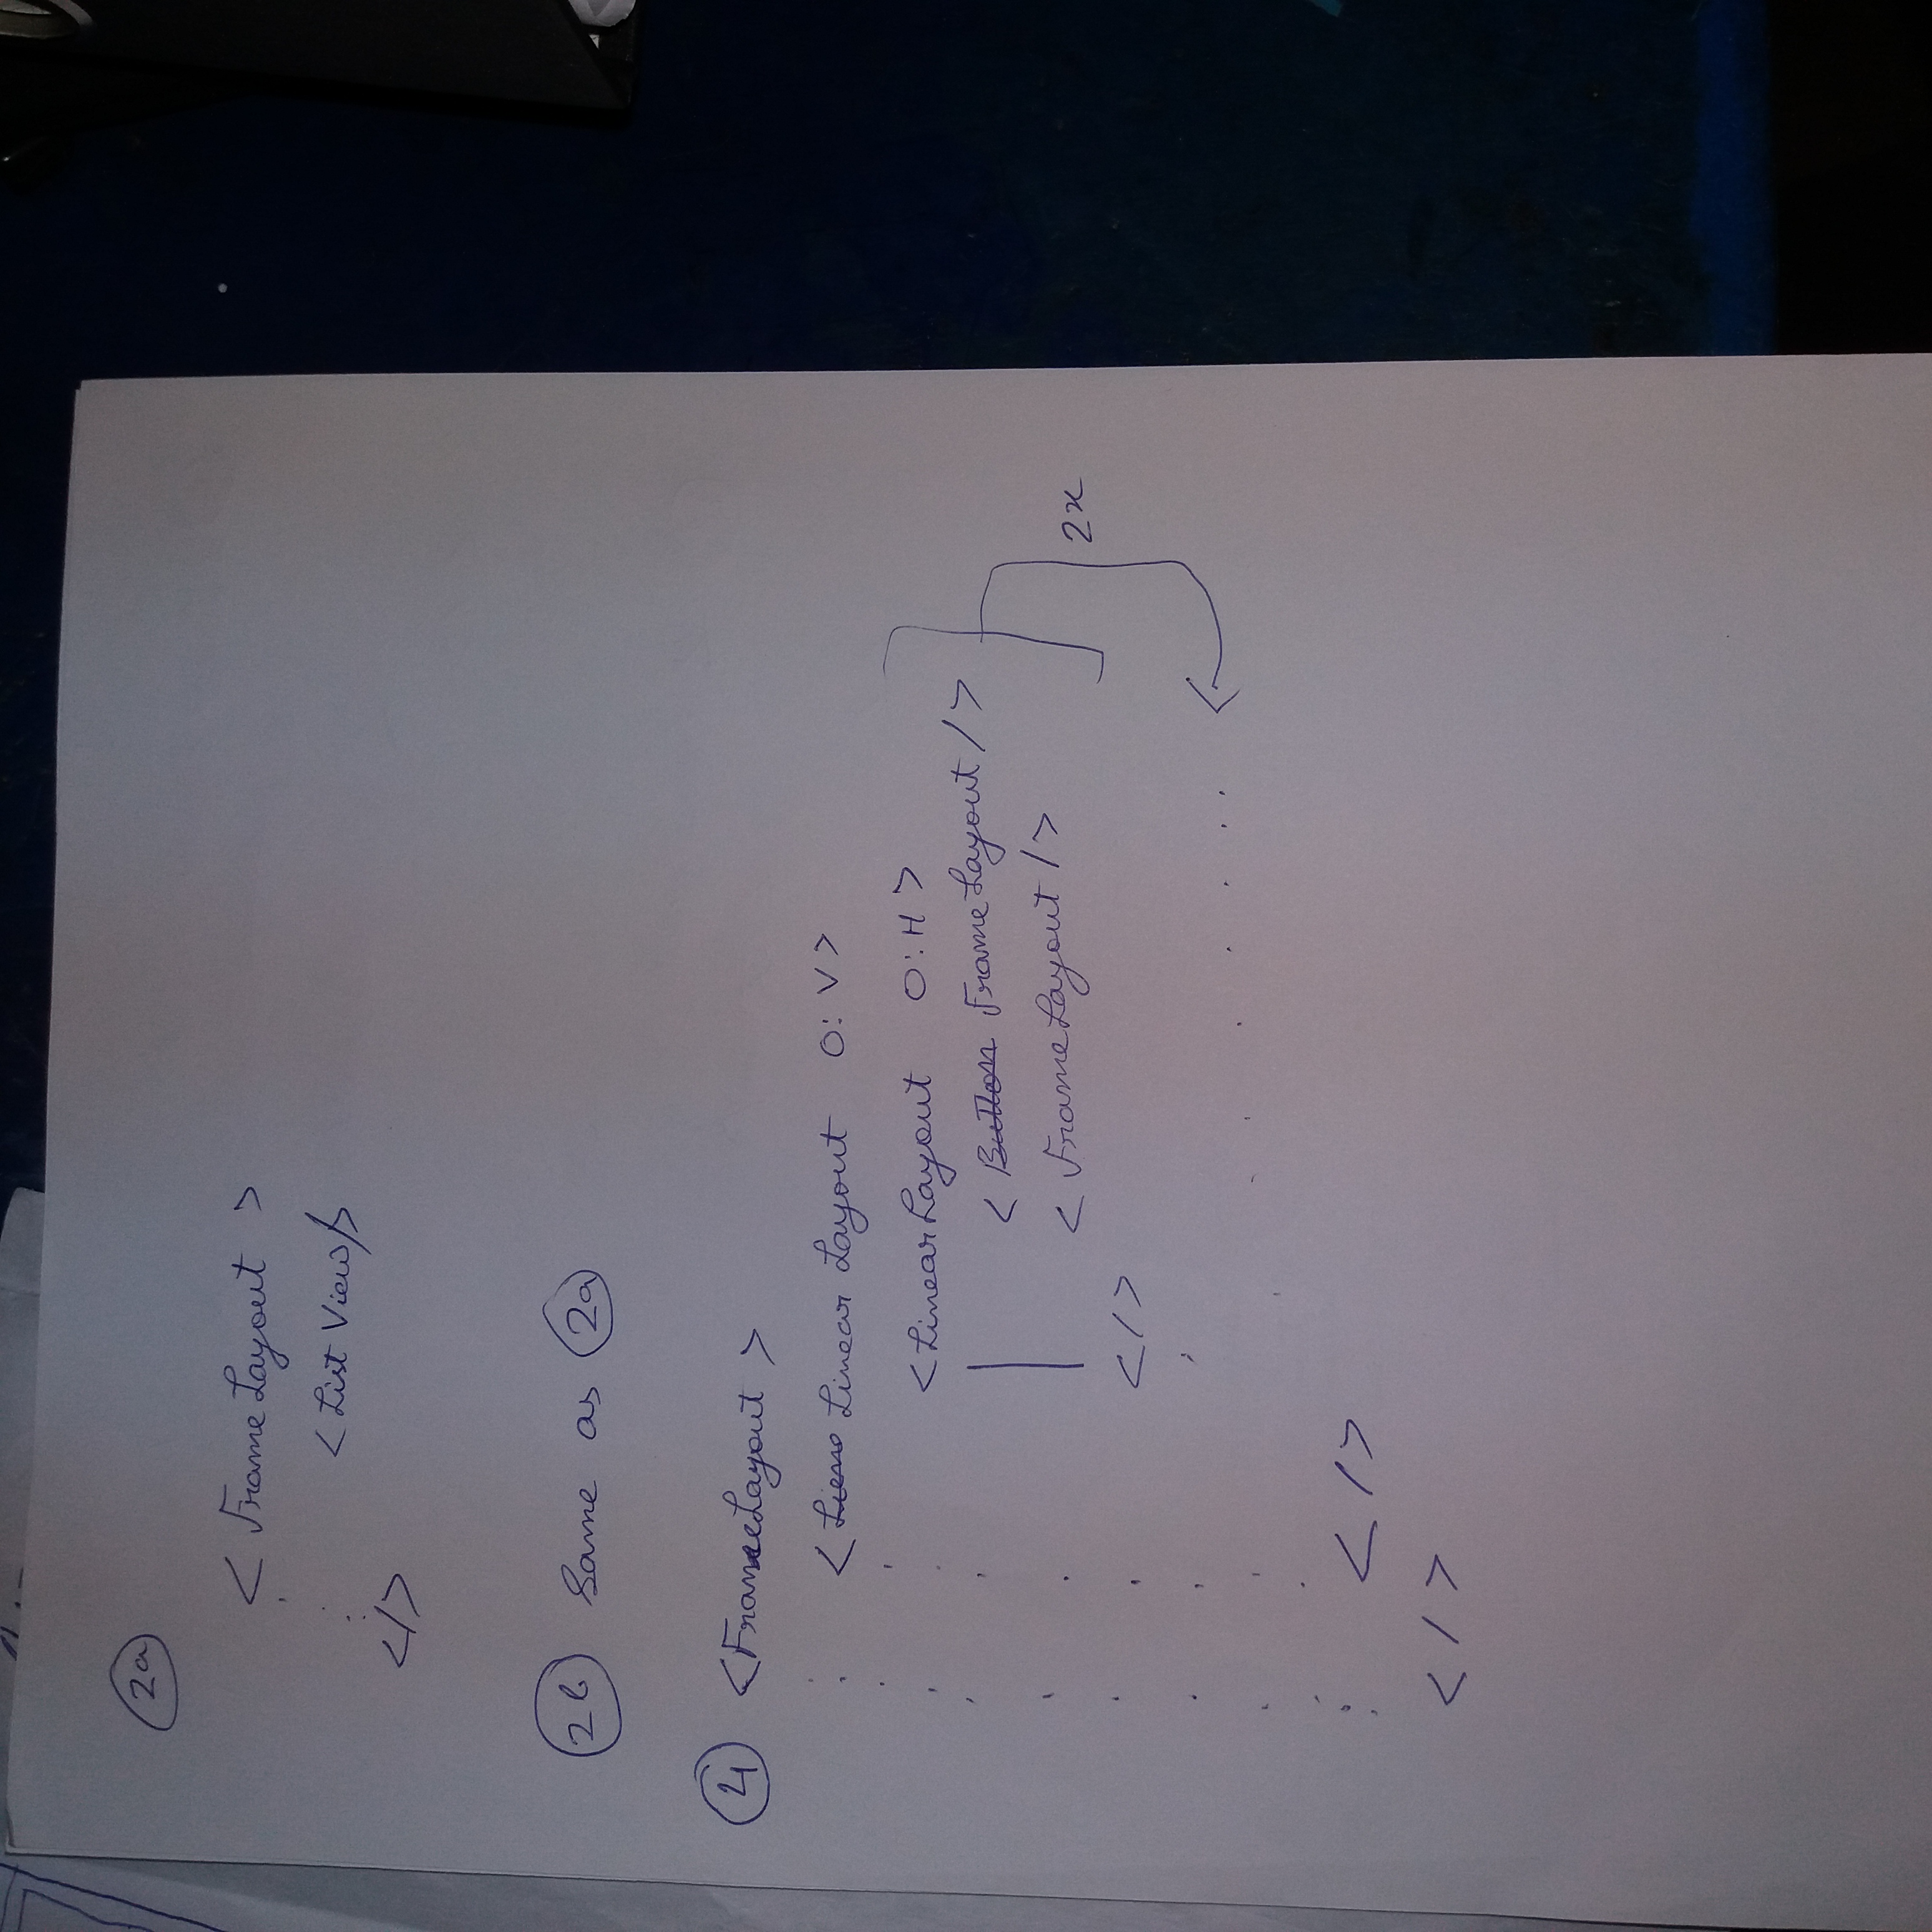 2a
< FrameLayout >
<List View/>
</>
2b Same as 2a
4 <FrameLayout >
< Linear Layout O: V>
<LinearLayout O:H >
< Button FrameLayout />
< FrameLayout />
2x
</>
</>
</>